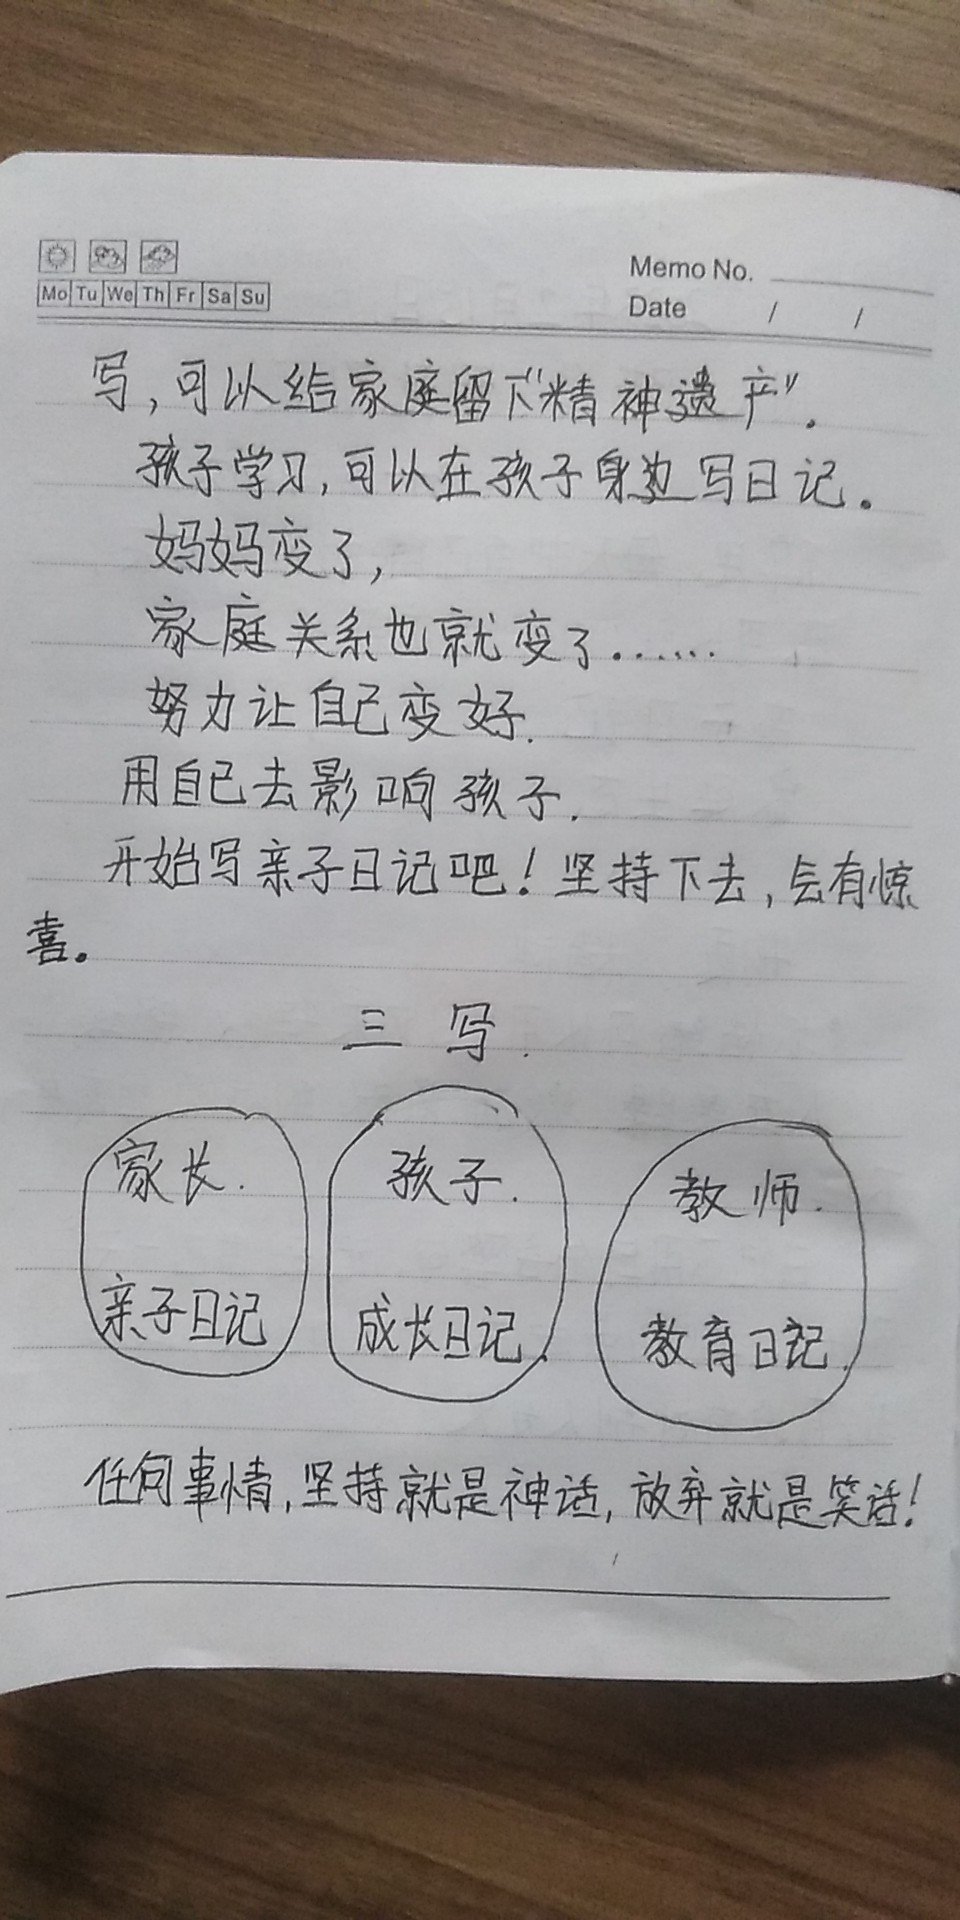 Memo No.
Mo Tu We Th Fr Sa Su
Date / /
写,可以给家庭留下“精神遗产”.
孩子学习,可以在孩子身边写日记。
妈妈变了,
家庭关系也就变了……
努力让自己变好.
用自己去影响孩子.
开始写亲子日记吧!坚持下去,会有惊
喜。
三 写.
家长.
亲子日记
孩子.
成长日记.
教师.
教育日记.
任何事情,坚持就是神话,放弃就是笑话!